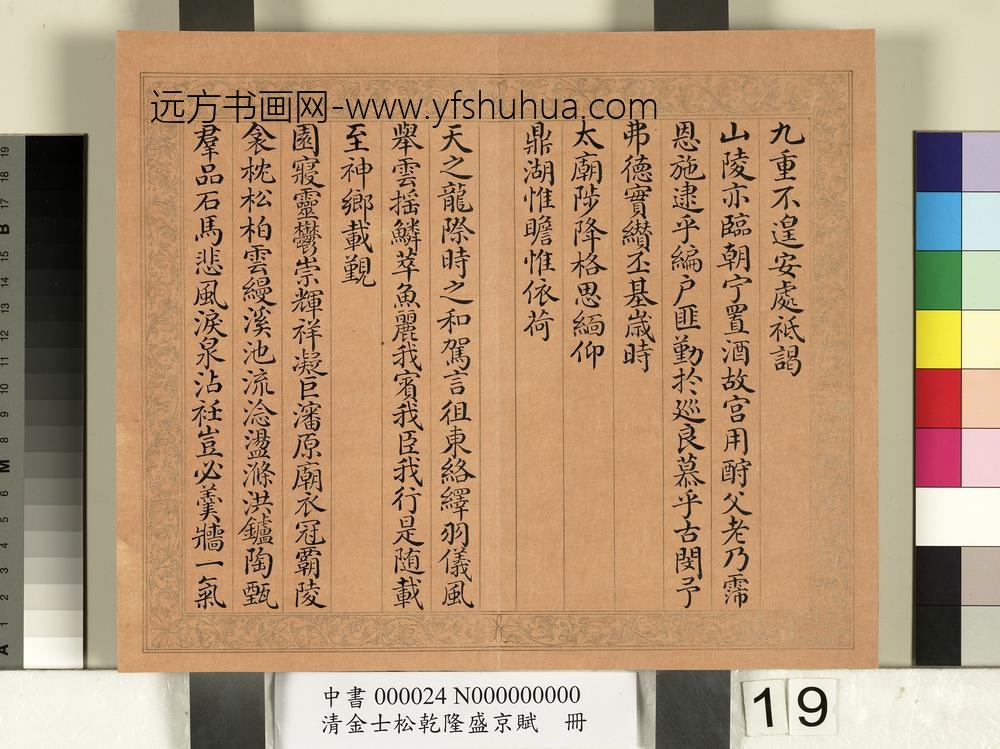 远方书画网-www.yfshuhua.com
九重不遑安處祗謁
山陵亦臨朝宁置酒故宫用酹父老乃霈
恩施逮乎編户匪勤扵廵良慕乎古閔予
弗德實纉丕基歳時
太廟陟降格思緬仰
鼎湖惟瞻惟依荷
天之龍際時之和駕言徂東絡繹羽儀風
舉雲摇鱗萃魚麗我賓我臣我行是随載
至神鄉載覲
園寢靈鬱崇輝祥凝巨瀋原廟衣冠霸陵
衾枕松柏雲縵溪池流淰盪滌洪鑪陶甄
羣品石馬悲風淚泉沾衽豈必羮牆一氣
中書 000024 N000000000
清金士松乾隆盛京賦 冊
19
19
18
17
B
15
14
13
12
11
10
9
8
M
6
5
4
3
2
1
A